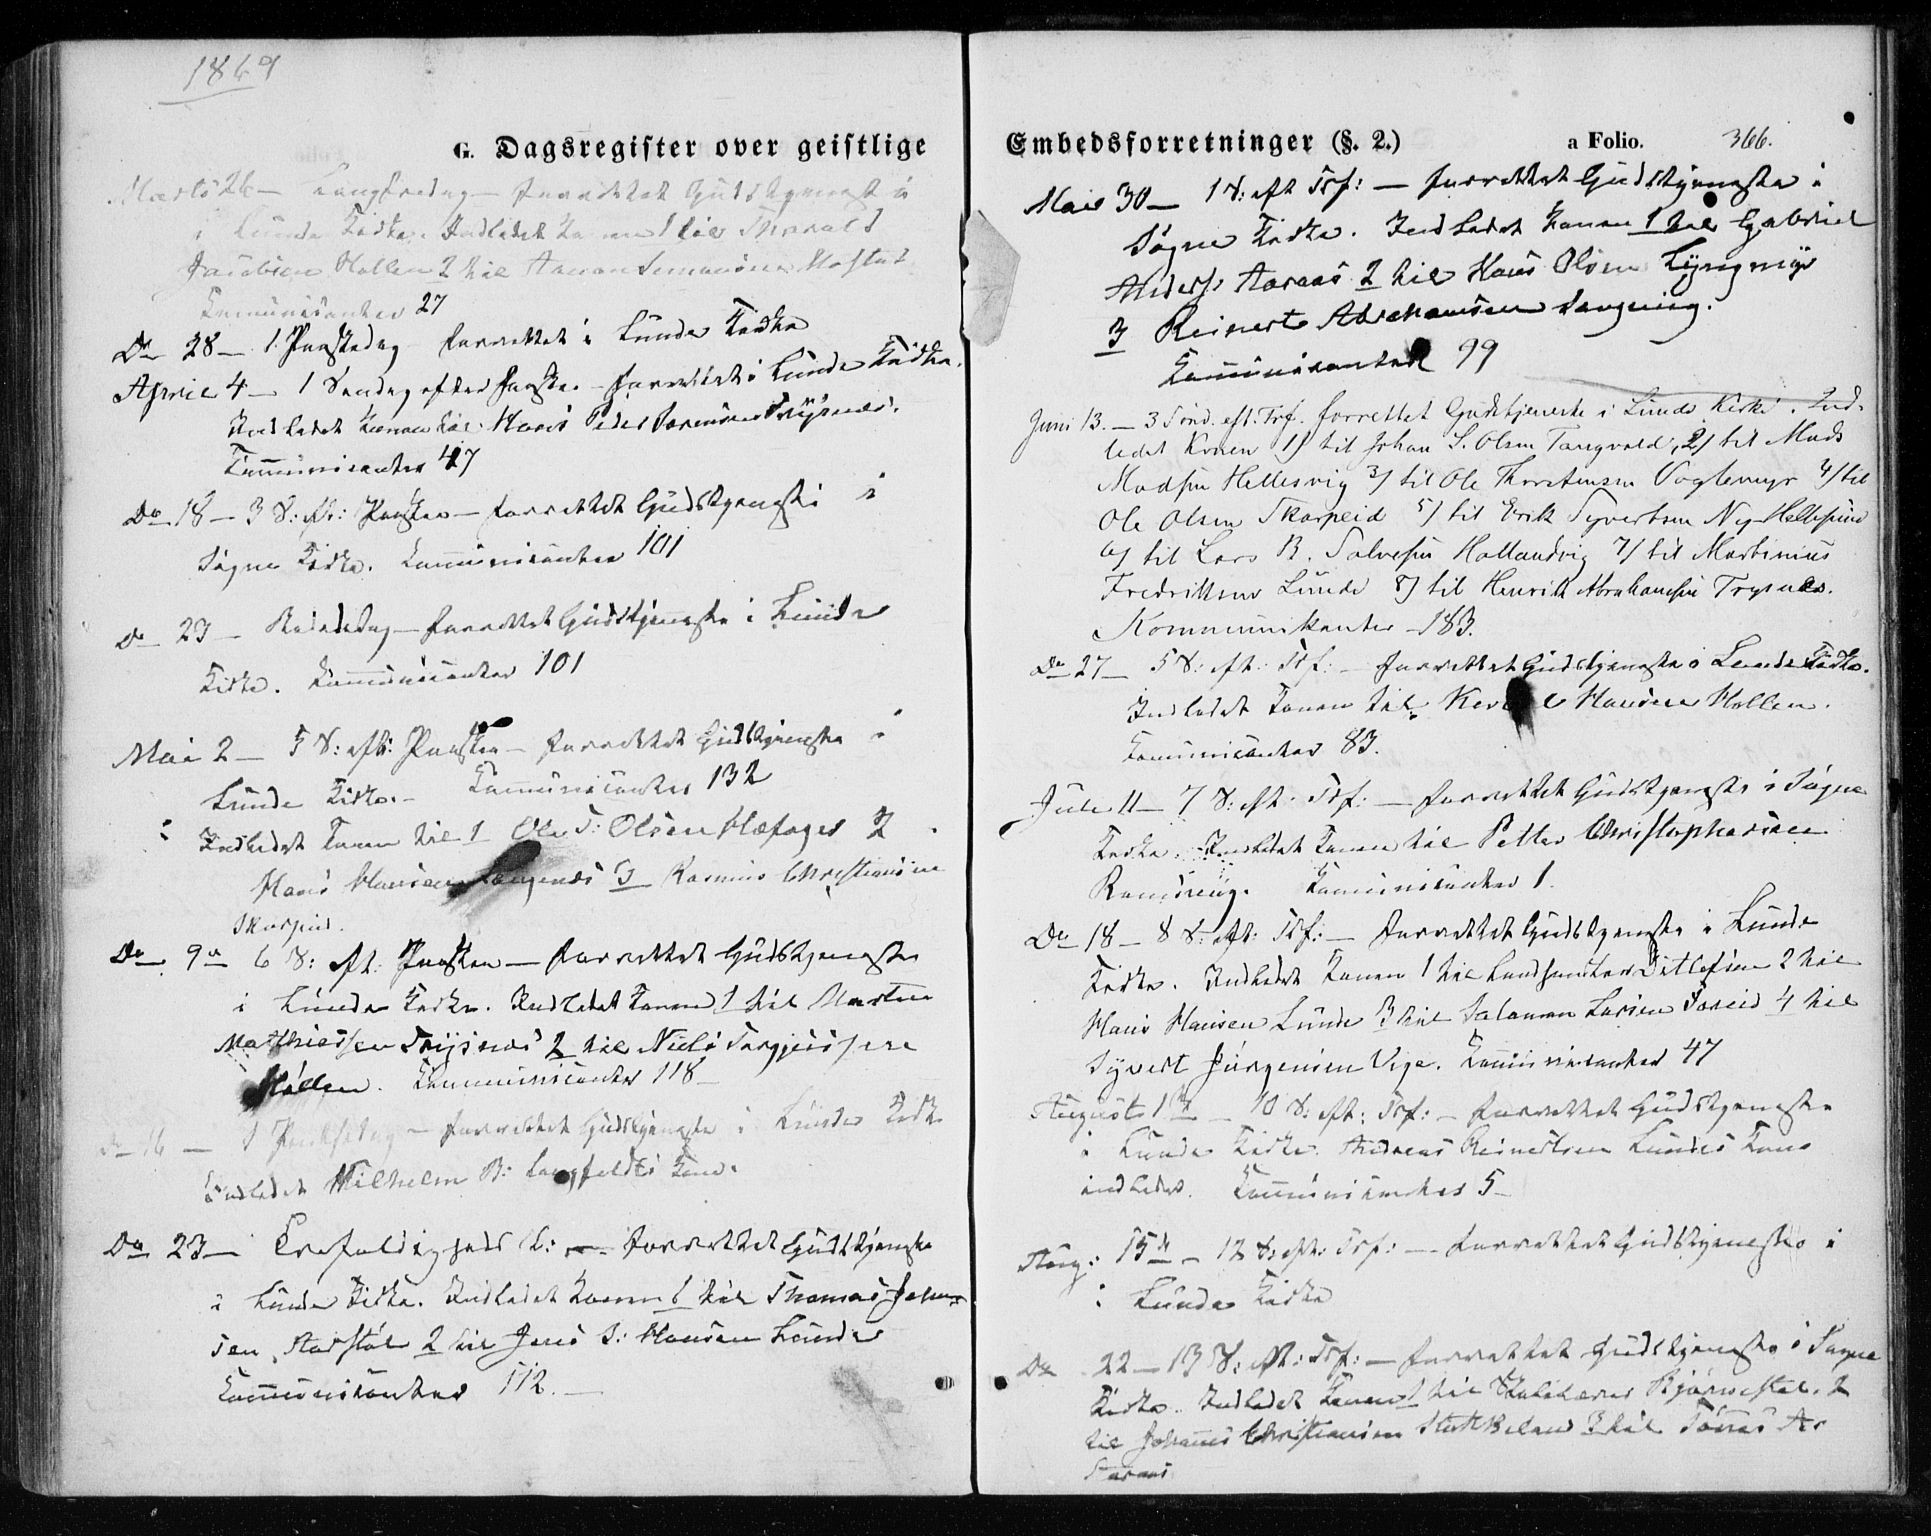 1869
G. Dagsregister over geistlige
Marts 26 — Langfredag — forrettet Gudstjeneste
i Lunde Kirke. Indledet Konen 1 til Thorvald
Jacobsen Hollen 2 til
Communicanter 27
Do 28 — 1 Paaskedag forrettet i Lunde Kirke
April 4 — 1 Søndag efter Paaske — forrettet i Lunde Kirke.
Indledet Konen til Hans Peder Sørensen Trysnæs.
Communicanter 47
Do 18 — 3 S: eft: Paaske — forrettet Gudstjeneste i
Søgne Kirke. Communicanter 101
Do 23 — Bededag — forrettet Gudstjeneste i Lunde
Kirke. Communicanter 101
Mai 2 — 5 S: eft: Paaske — forrettet Gudstjeneste i
Lunde Kirke. — Communicanter 132
Indledet Konen til 1 Ole T: Olsen Høfager 2
Hans Hansen Langenes 3 Rasmus Christiansen
Skarpeid.
Do 9de 6 S: eft. Paaske — forrettet Gudstjeneste
i Lunde Kirke. Indledet Konen 1 til Morten
Mathiessen Trysnæs 2 til Niels Torgjussen
Høllen. Communicanter 118 —
Do 16 — 1 Pindsedag — forrettet Gudstjeneste i Lunde Kirke
Indledet Wilhelm B: Langfeldts Kone.
Do 23 — Trefoldigheds S: — forrettet Gudstjeneste
i Lunde Kirke. Indledet Konen 1 til Thomas Johan-
sen Aarstøl 2 til Jens S: Hansen Lunde
Communicanter 112. —
Embedsforretninger (§. 2.) a Folio. 366.
Mai 30 — 1 S: eft Trf: — forrettet Gudstjeneste i
Søgne Kirke. Indledet Konen 1 til Gabriel
Anders: Aaraas 2 til Hans Olsen Lyngmyr
3 Reinert Abrahamsen
Communicanter 99
Juni 13. — 3 Sønd. eft. Trf. forrettet Gudstjeneste i Lunde Kirke. Ind-
ledet Konen 1/ til Johan S. Olsen Tangvald, 2/ til Mads
Madsen Hellesvig 3/ til Ole Thorstensen Voglemyr 4/ til
Ole Olsen Skarpeid 5/ til Erik Syvertsen Ny-Hellesund
6/ til Lars B. Salvesen Hallandvig 7/ til Martinius
Fredriksen Lunde 8/ til Henrik Abrahamsen Trysnes.
Kommunikanter — 183.
Do 27 — 5 S: eft: Trf: — forrettet Gudstjeneste i Lunde Kirke.
Indledet Konen til Hansen Hollen.
Communicanter 83.
Juli 11 — 7 S: eft: Trf: — forrettet Gudstjeneste i Søgne
Kirke. Indledet Konen til Petter Christophersen
Communicanter 1.
Do 18 — 8 S: eft: Trf: — forrettet Gudstjeneste i Lunde
Kirke. Indledet Konen 1 til Ditlefsen 2 til
Hans Hansen Lunde 3 til Salomon Larsen 4 til
Syvert Jørgensen Vige. Communicanter 47
August 1ste — 10 S: eft: Trf: — forrettet Gudstjeneste
i Lunde Kirke. Andreas Reinertsen Lundes Kone
indledet. Communicanter 5 —
Aug: 15de — 12 S: eft: Trf: — forrettet Gudstjeneste i
i Lunde Kirke
Do 22 — 13 S: eft: Trf: — forrettet Gudstjeneste i Søgne
Kirke. Indledet Konen 1 til Bjørnestøl. 2
til Johannes Christiansen Stokkeland 3 til Tønnes